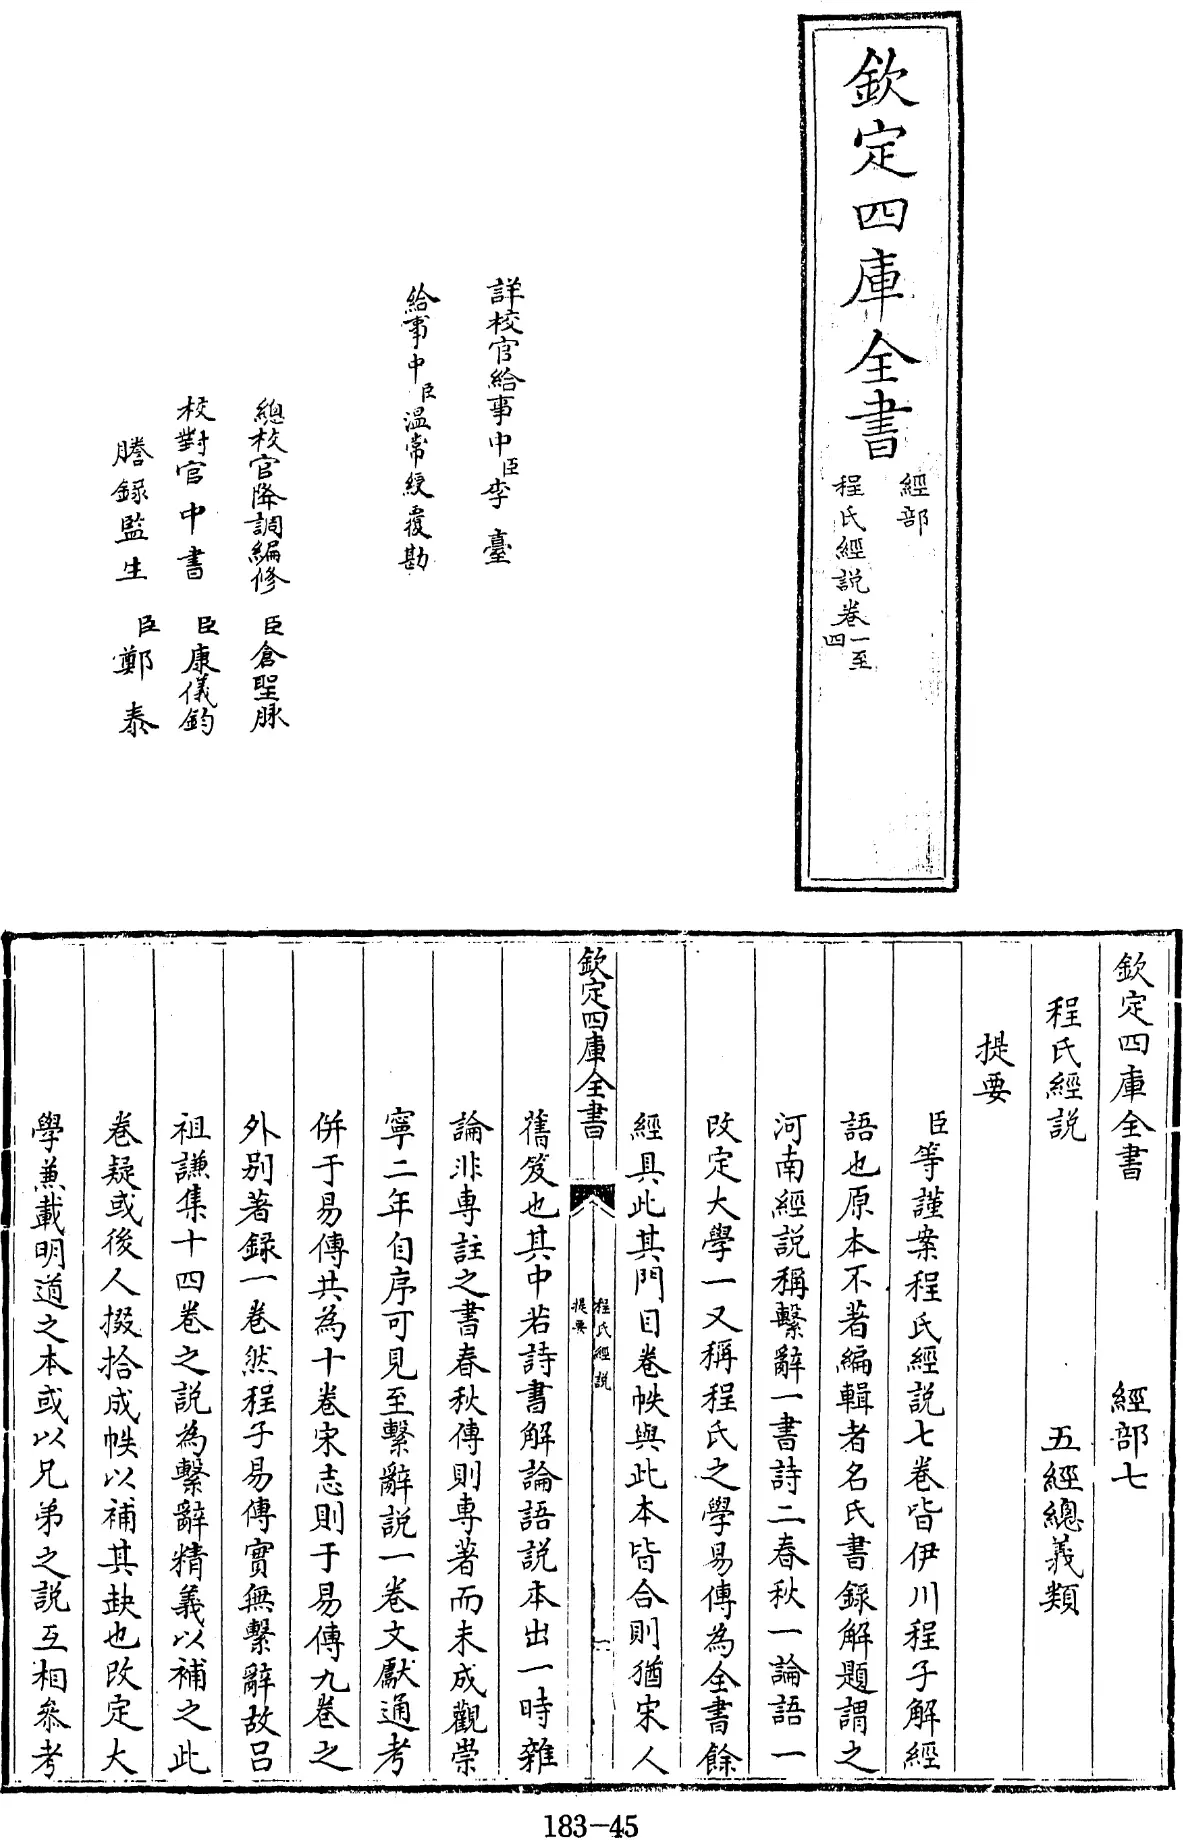 欽定四庫全書
經部
程氏經説卷一至四
詳校官給事中臣李臺
給事中臣温常綬覆勘
總校官降調編修臣倉聖脉
校對官中書臣康儀鈞
謄錄監生臣鄭泰
欽定四庫全書 經部七
程氏經説 五經總義類
提要
臣等謹案程氏經説七卷皆伊川程子解經
語也原本不著編輯者名氏書錄解題謂之
河南經説稱繫辭一書詩二春秋一論語一
改定大學一又稱程氏之學易傳為全書餘
經具此其門目卷帙與此本皆合則猶宋人
欽定四庫全書
程氏經説
提要
一
舊笈也其中若詩書解論語説本出一時雜
論非專註之書春秋傳則專著而未成觀崇
寧二年自序可見至繫辭説一卷文獻通考
併于易傳共為十卷宋志則于易傳九卷之
外别著錄一卷然程子易傳實無繫辭故吕
祖謙集十四卷之説為繫辭精義以補之此
卷疑或後人掇拾成帙以補其缺也改定大
學兼載明道之本或以兄弟之説互相叅考
183-45